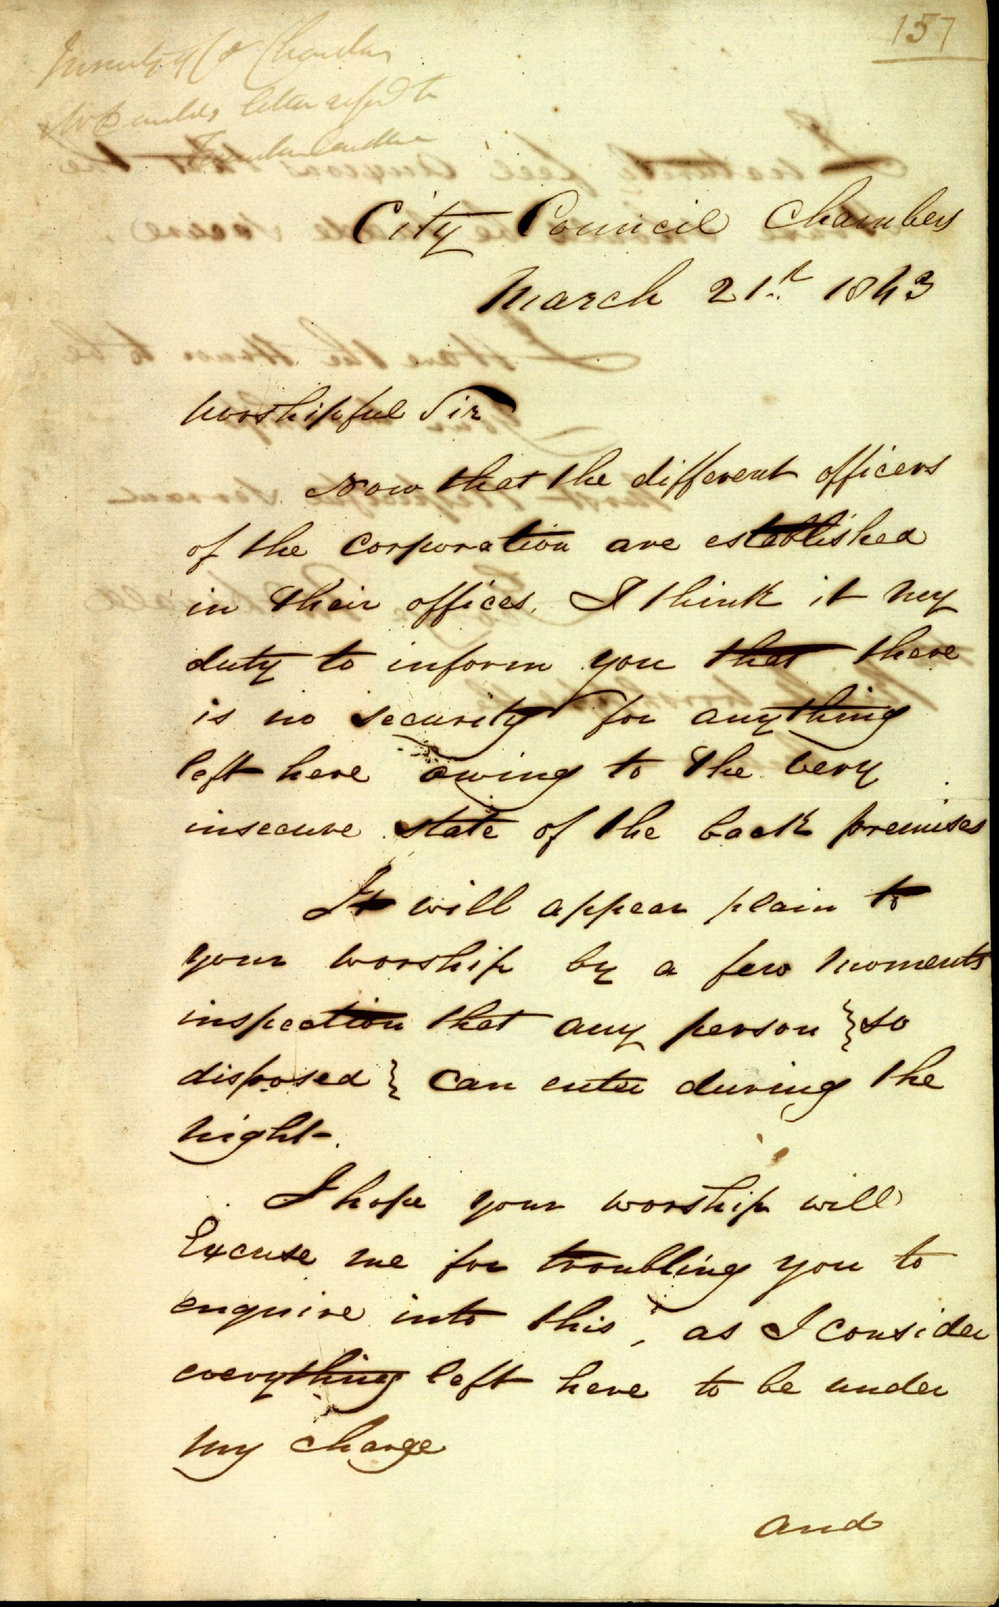 157
letter refd to
City Council Chambers
March 21st 1843
Worshipful Sir
Now that the different officers
of the corporation are established
in their offices, I think it my
duty to inform you that there
is no security for anything
left here owing to the very
insecure state of the back premises
It will appear plain to
your worship by a few moments
inspection that any person } so
disposed } can enter during the
night.
I hope your worship will
Excuse me for troubling you to
enquire into this, as I consider
everything left here to be under
my charge
and